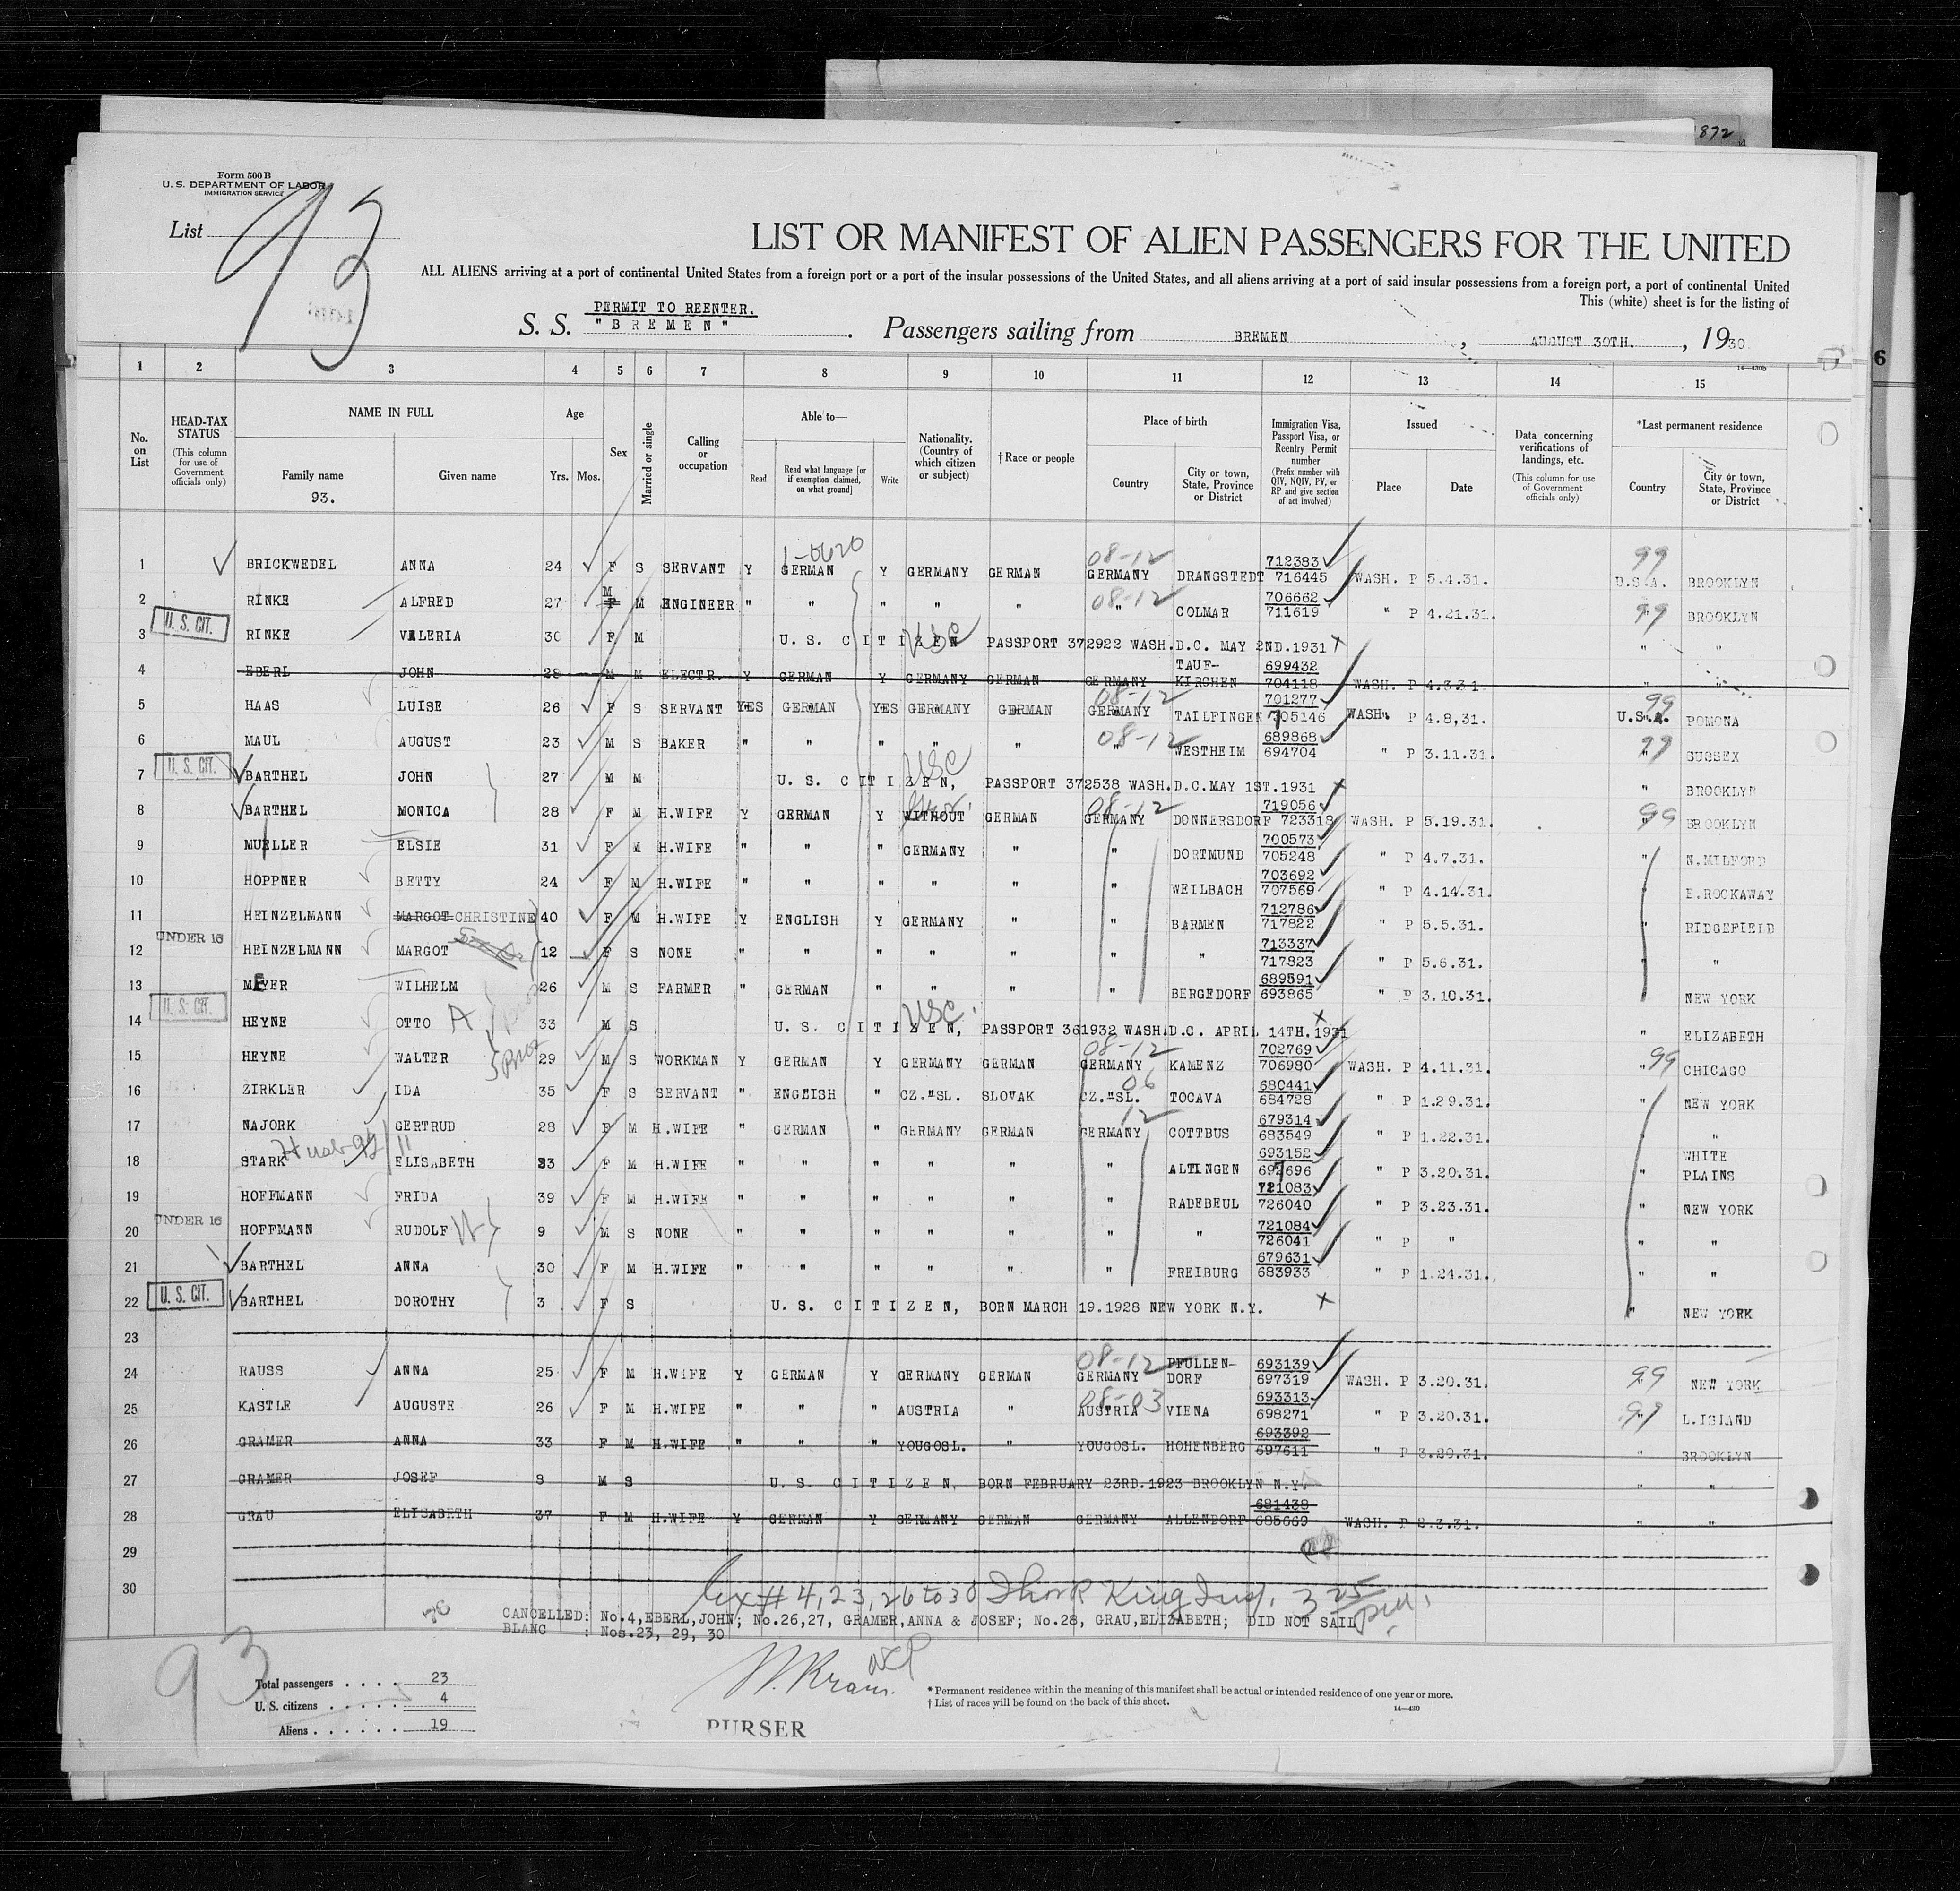 872
Form 500 B
U. S. DEPARTMENT OF LABOR
IMMIGRATION SERVICE
List 93
LIST OR MANIFEST OF ALIEN PASSENGERS FOR THE UNITED
ALL ALIENS arriving at a port of continental United States from a foreign port or a port of the insular possessions of the United States, and all aliens arriving at a port of said insular possessions from a foreign port, a port of continental United
This (white) sheet is for the listing of
PERMIT TO REENTER.
S. S. "BREMEN". Passengers sailing from BREMEN, AUGUST 30TH., 1930.
6
14—430b
1 2 3 4 5 6 7 8 9 10 11 12 13 14 15
No. on List
HEAD-TAX STATUS
(This column for use of Government officials only)
NAME IN FULL
Family name
93.
Given name
Age
Yrs. Mos.
Sex
Married or single
Calling or occupation
Able to—
Read
Read what language [or if exemption claimed, on what ground]
Write
Nationality. (Country of which citizen or subject)
† Race or people
Place of birth
Country
City or town, State, Province or District
Immigration Visa, Passport Visa, or Reentry Permit number
(Prefix number with QIV, NQIV, PV, or RP and give section of act involved)
Issued
Place
Date
Data concerning verifications of landings, etc.
(This column for use of Government officials only)
*Last permanent residence
Country
City or town, State, Province or District
1-0620 08-12 99
1 BRICKWEDEL ANNA 24 F S SERVANT Y GERMAN Y GERMANY GERMAN GERMANY DRANGSTEDT 712383 716445 WASH. P 5.4.31. U.S.A. BROOKLYN
2 RINKE ALFRED 27 M F M ENGINEER " " " " " 08-12 " COLMAR 706662 711619 " P 4.21.31. 99 " BROOKLYN
U. S. CIT.
3 RINKE VALERIA 30 F M U. S. CITIZEN USC PASSPORT 372922 WASH.D.C. MAY 2ND.1931 X " "
4 EBERL JOHN 28 M M ELECTR. Y GERMAN Y GERMANY GERMAN GERMANY TAUF-KIRCHEN 699432 704118 WASH. P 4.3.31. " "
5 HAAS LUISE 26 F S SERVANT YES GERMAN YES GERMANY GERMAN 08-12 GERMANY TAILFINGEN 701277 705146 WASH. P 4.8.31. 99 U.S.A. POMONA
6 MAUL AUGUST 23 M S BAKER " " " " " 08-12 " WESTHEIM 689868 694704 " P 3.11.31. 99 " SUSSEX
U. S. CIT.
7 BARTHEL JOHN 27 M M U. S. CITIZEN, USC PASSPORT 372538 WASH.D.C.MAY 1ST.1931 X " BROOKLYN
8 BARTHEL MONICA 28 F M H.WIFE Y GERMAN Y WITHOUT GERMAN 08-12 GERMANY DONNERSDORF 719056 723318 WASH. P 5.19.31. 99 " BROOKLYN
9 MUELLER ELSIE 31 F M H.WIFE " " " GERMANY " " DORTMUND 700573 705248 " P 4.7.31. " N.MILFORD
10 HOPPNER BETTY 24 F M H.WIFE " " " " " " WEILBACH 703692 707569 " P 4.14.31. " E.ROCKAWAY
11 HEINZELMANN MARGOT CHRISTINE 40 F M H.WIFE Y ENGLISH Y GERMANY " " BARMEN 712786 717822 " P 5.5.31. " RIDGEFIELD
UNDER 16
12 HEINZELMANN MARGOT 12 F S NONE " " " " " " " 713337 717823 " P 5.6.31. " "
13 MEYER WILHELM 26 M S FARMER " GERMAN " " " " BERGEDORF 689591 693865 " P 3.10.31. NEW YORK
U. S. CIT.
14 HEYNE OTTO A 33 M S U. S. CITIZEN, USC. PASSPORT 361932 WASH.D.C. APRIL 14TH.1931 X " ELIZABETH
15 HEYNE WALTER 29 M S WORKMAN Y GERMAN Y GERMANY GERMAN 08-12 GERMANY KAMENZ 702769 706980 WASH. P 4.11.31. 99 " CHICAGO
16 ZIRKLER IDA 35 F S SERVANT " ENGLISH " CZ.-SL. SLOVAK 06 CZ.-SL. TOCAVA 680441 684728 " P 1.29.31. " NEW YORK
17 NAJORK GERTRUD 28 F M H.WIFE " GERMAN " GERMANY GERMAN 12 GERMANY COTTBUS 679314 683549 " P 1.22.31. " "
18 STARK ELISABETH 33 F M H.WIFE " " " " " " ALTINGEN 693152 697696 " P 3.20.31. " WHITE PLAINS
19 HOFFMANN FRIDA 39 F M H.WIFE " " " " " " RADEBEUL 721083 726040 " P 3.23.31. " NEW YORK
UNDER 16
20 HOFFMANN RUDOLF 9 M S NONE " " " " " " " 721084 726041 " P " " "
21 BARTHEL ANNA 30 F M H.WIFE " " " " " " FREIBURG 679631 683933 " P 1.24.31. " "
U. S. CIT.
22 BARTHEL DOROTHY 3 F S U. S. CITIZEN, BORN MARCH 19.1928 NEW YORK N.Y. X " NEW YORK
23
24 RAUSS ANNA 25 F M H.WIFE Y GERMAN Y GERMANY GERMAN 08-12 GERMANY PFULLEN-DORF 693139 697319 WASH. P 3.20.31. 99 NEW YORK
25 KASTLE AUGUSTE 26 F M H.WIFE " " " AUSTRIA " 08-03 AUSTRIA VIENA 693313 698271 " P 3.20.31. 99 " L.ISLAND
26 GRAMER ANNA 33 F M H.WIFE " " " YOUGOSL. " YOUGOSL. HOHENBERG 693392 697611 " P 3.20.31. " BROOKLYN
27 GRAMER JOSEF 8 M S U. S. CITIZEN, BORN FEBRUARY 23RD.1923 BROOKLYN N.Y. " "
28 GRAU ELISABETH 37 F M H.WIFE Y GERMAN Y GERMANY GERMAN GERMANY ALLENDORF 681438 685669 WASH. P 2.3.31. " "
29
30
# 4, 23, 26 to 30
CANCELLED: No.4,EBERL,JOHN; No.26,27, GRAMER,ANNA & JOSEF; No.28, GRAU,ELIZABETH; DID NOT SAIL
BLANC : Nos.23, 29, 30
93
Total passengers . . . . 23
U. S. citizens . . . . . 4
Aliens . . . . . . 19
PURSER
* Permanent residence within the meaning of this manifest shall be actual or intended residence of one year or more.
† List of races will be found on the back of this sheet.
14—430